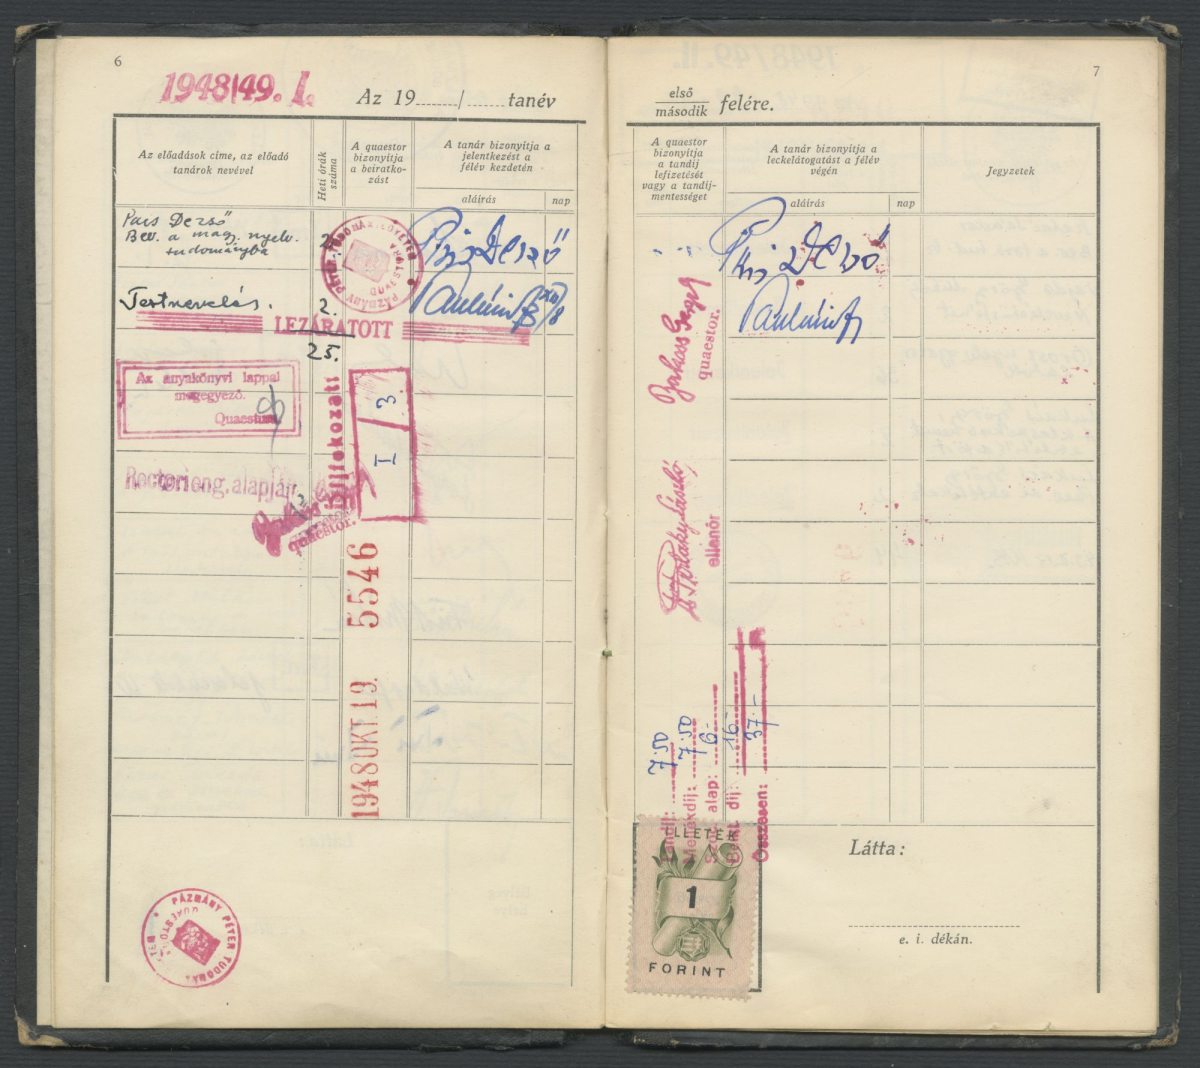 6
1948/49. I.
Az 19....../...... tanév
Az előadások címe, az előadó
tanárok nevével
Heti órák
száma
A quaestor
bizonyítja
a beiratko-
zást
A tanár bizonyítja a
jelentkezést a
félév kezdetén
aláírás
nap
Pais Dezső
Bev. a magy. nyelv.
tudományba
2.
Pais Dezső
Testnevelés.
2.
LEZÁRATOTT
25.
Az anyakönyvi lappal
megegyező.
Quaestura
Rectori eng. alapján
quaestor.
I
3
5546
1948 OKT 19.
PÁZMÁNY PÉTER TUDOMÁNY
7
első
második
felére.
A quaestor
bizonyítja
a tandíj
lefizetését
vagy a tandíj-
mentességet
A tanár bizonyítja a
leckelátogatást a félév
végén
Jegyzetek
aláírás
nap
Pais Dezső
quaestor.
ellenőr
Tandíj: 7.50
Mellékdíj: 7.50
alap: 6.-
díj: 16.-
Összesen: 37.-
ILLETÉK
1
FORINT
Látta:
e. i. dékán.